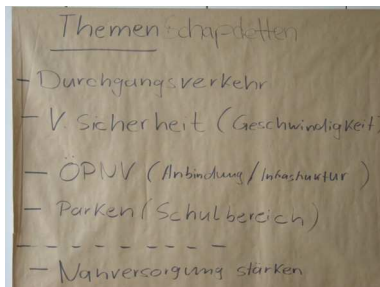 Themen
- Durchgangsverkehr
- V. Sicherheit (Geschwindigkeit)
- ÖPNV (Anbindung/Infrastruktur)
- Parken (Schulbereich)
- Nahversorgung stärken